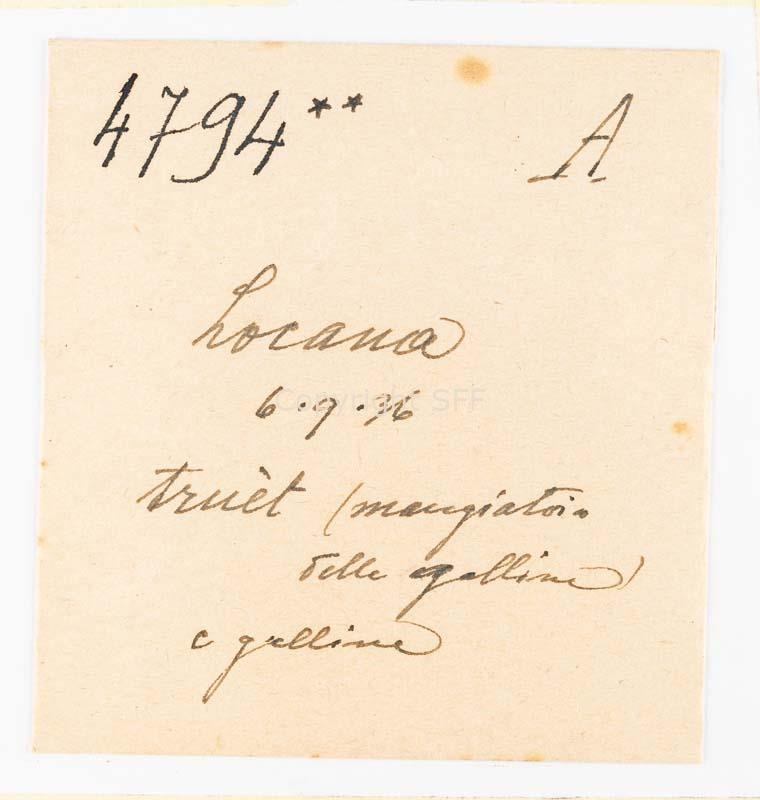 4794** A
Locana
6.9.36
truèt (mangiatoia
delle galline)
e galline
Copyright SFF